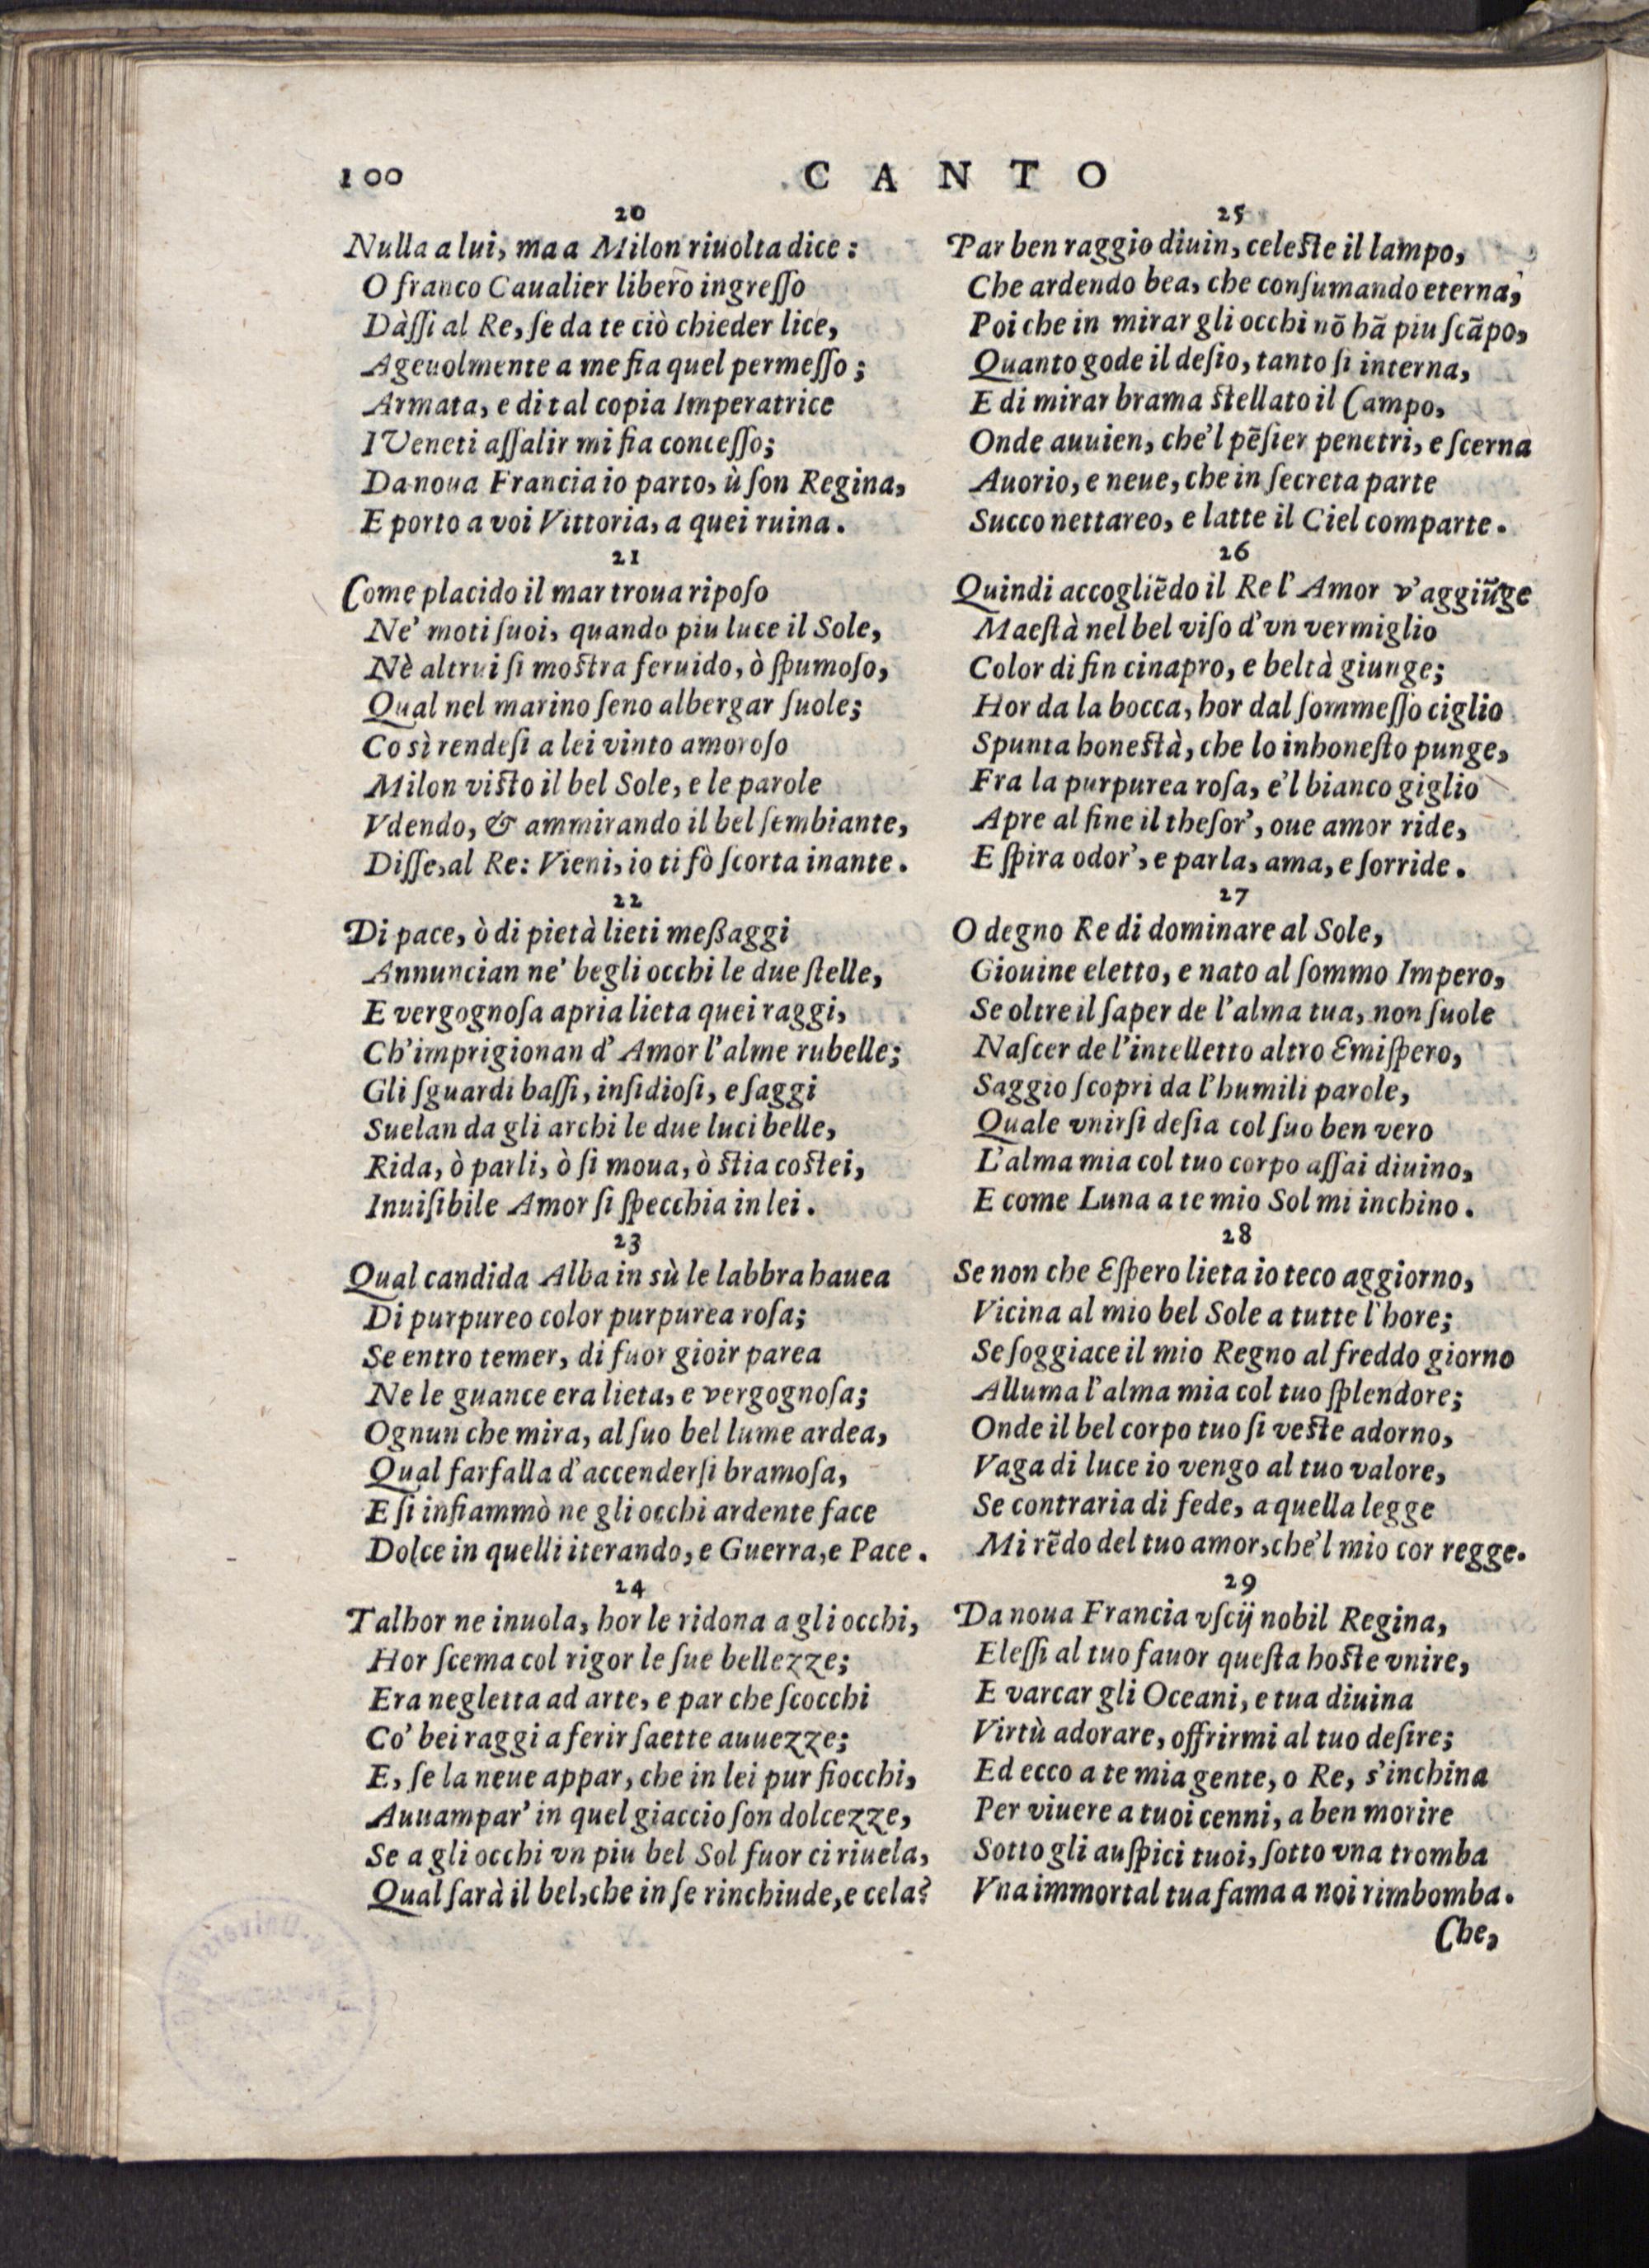 100
CANTO
20
Nulla a lui, ma a Milon riuolta dice:
O franco Caualier libero ingreſſo
Dàſſi al Re, ſe da te ciò chieder lice,
Ageuolmente a me fia quel permeſſo;
Armata, e di tal copia Imperatrice
I Veneti aſſalir mi fia conceſſo;
Da noua Francia io parto, ù ſon Regina,
E porto a voi Vittoria, a quei ruina.
21
Come placido il mar troua ripoſo
Ne' moti ſuoi, quando piu luce il Sole,
Nè altrui ſi moſtra feruido, ò ſpumoſo,
Qual nel marino ſeno albergar ſuole;
Co sì rendeſi a lei vinto amoroſo
Milon viſto il bel Sole, e le parole
Vdendo, & ammirando il bel ſembiante,
Diſſe, al Re: Vieni, io ti fò ſcorta inante.
22
Di pace, ò di pietà lieti meßaggi
Annuncian ne' begli occhi le due ſtelle,
E vergognoſa apria lieta quei raggi,
Ch'imprigionan d'Amor l'alme rubelle;
Gli ſguardi baſſi, inſidioſi, e ſaggi
Suelan da gli archi le due luci belle,
Rida, ò parli, ò ſi moua, ò ſtia coſtei,
Inuiſibile Amor ſi ſpecchia in lei.
23
Qual candida Alba in sù le labbra hauea
Di purpureo color purpurea roſa;
Se entro temer, di fuor gioir parea
Ne le guance era lieta, e vergognoſa;
Ognun che mira, al ſuo bel lume ardea,
Qual farfalla d'accenderſi bramoſa,
E ſi infiammò ne gli occhi ardente face
Dolce in quelli iterando, e Guerra, e Pace.
24
Talhor ne inuola, hor le ridona a gli occhi,
Hor ſcema col rigor le ſue bellezze;
Era negletta ad arte, e par che ſcocchi
Co' bei raggi a ferir ſaette auuezze;
E, ſe la neue appar, che in lei pur fiocchi,
Auuampar' in quel giaccio ſon dolcezze,
Se a gli occhi vn piu bel Sol fuor ci riuela,
Qual ſarà il bel, che in ſe rinchiude, e cela?
25
Par ben raggio diuin, celeſte il lampo,
Che ardendo bea, che conſumando eterna,
Poi che in mirar gli occhi nō hā piu ſcāpo,
Quanto gode il deſio, tanto ſi interna,
E di mirar brama ſtellato il Campo,
Onde auuien, che'l pēſier penetri, e ſcerna
Auorio, e neue, che in ſecreta parte
Succo nettareo, e latte il Ciel comparte.
26
Quindi accogliēdo il Re l'Amor v'aggiūge
Maeſtà nel bel viſo d'vn vermiglio
Color di fin cinapro, e beltà giunge;
Hor da la bocca, hor dal ſommeſſo ciglio
Spunta honeſtà, che lo inhoneſto punge,
Fra la purpurea roſa, e'l bianco giglio
Apre al fine il theſor', oue amor ride,
E ſpira odor', e parla, ama, e ſorride.
27
O degno Re di dominare al Sole,
Giouine eletto, e nato al ſommo Impero,
Se oltre il ſaper de l'alma tua, non ſuole
Naſcer de l'intelletto altro Emiſpero,
Saggio ſcopri da l'humili parole,
Quale vnirſi deſia col ſuo ben vero
L'alma mia col tuo corpo aſſai diuino,
E come Luna a te mio Sol mi inchino.
28
Se non che Eſpero lieta io teco aggiorno,
Vicina al mio bel Sole a tutte l'hore;
Se ſoggiace il mio Regno al freddo giorno
Alluma l'alma mia col tuo ſplendore;
Onde il bel corpo tuo ſi veſte adorno,
Vaga di luce io vengo al tuo valore,
Se contraria di fede, a quella legge
Mi rēdo del tuo amor, che'l mio cor regge.
29
Da noua Francia vſcij nobil Regina,
Eleſſi al tuo fauor queſta hoſte vnire,
E varcar gli Oceani, e tua diuina
Virtù adorare, offrirmi al tuo deſire;
Ed ecco a te mia gente, o Re, s'inchina
Per viuere a tuoi cenni, a ben morire
Sotto gli auſpici tuoi, ſotto vna tromba
Vna immortal tua fama a noi rimbomba.
Che,